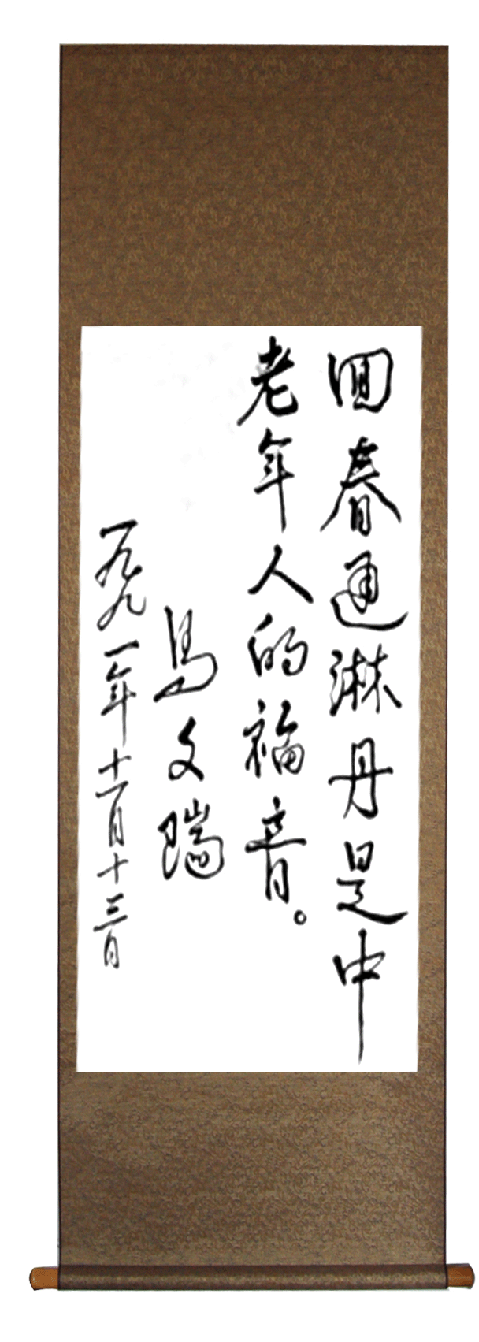 回春通淋丹是中
老年人的福音。
馬文瑞
一九九一年十一月十三日